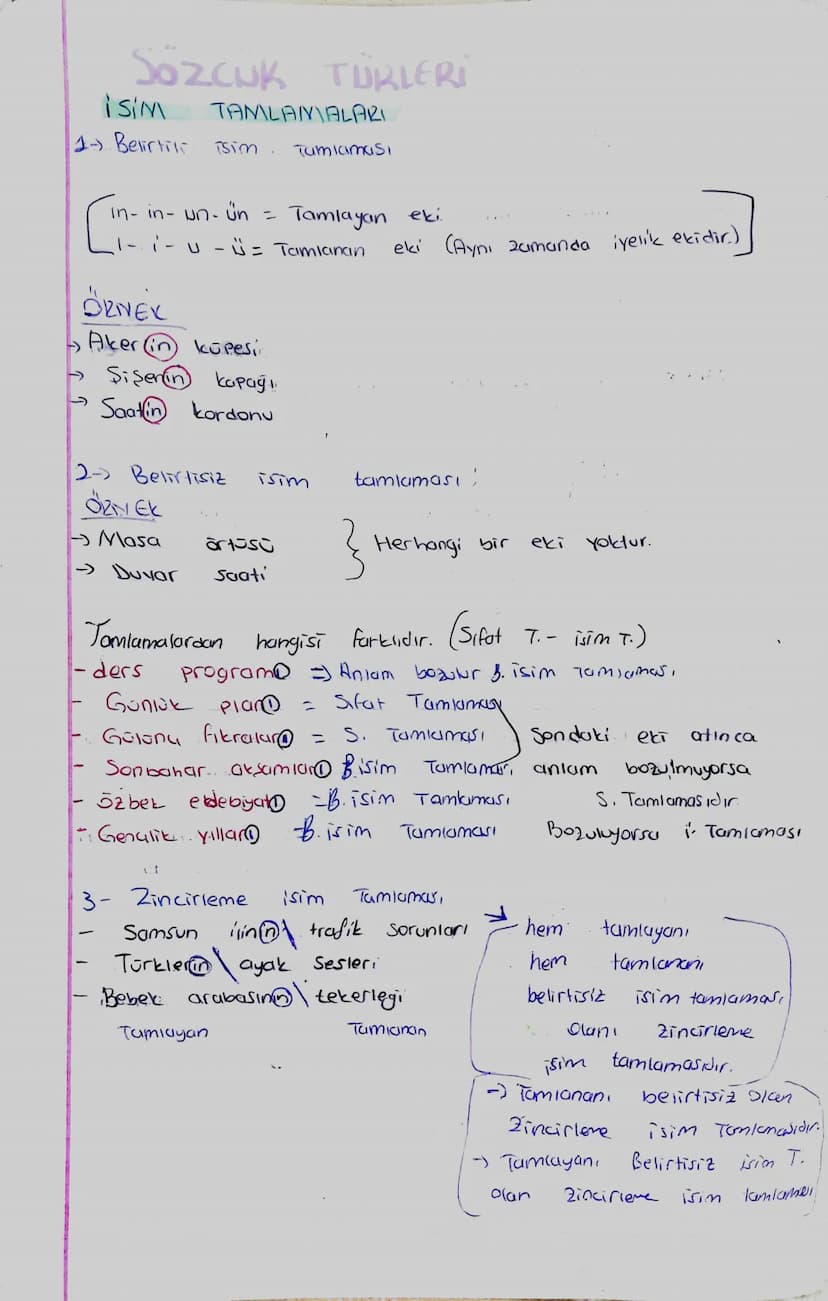 SÖZCÜK TÜRLERİ
İSİM TAMLAMALARI
1-> Belirtili isim tamlaması
ın- in- un- ün = Tamlayan eki
ı- i- u- ü = Tamlanan eki (Aynı zamanda iyelik ekidir.)
ÖRNEK
-> Aker(in) küpesi
-> Şişenin kapağı
-> Saatin kordonu
2-> Belirtisiz isim tamlaması:
ÖRNEK
-> Masa örtüsü } Herhangi bir eki yoktur.
-> Duvar saati
Tamlamalardan hangisi farklıdır. (Sıfat T.- isim T.)
- ders programı => Anlam bozulur B. isim Tamlaması
- Günlük planı = Sıfat Tamlaması
- Gülonu fıkraları = S. Tamlaması } Sondaki eki atınca
- Sonbahar akşamları B.isim Tamlaması, anlam bozulmuyorsa
- özbek edebiyatı =B. isim Tamlaması S. Tamlamasıdır
- Gençlik yılları =B. isim Tamlaması Bozuluyorsa i. Tamlaması
3- Zincirleme isim Tamlaması
- Samsun ilinin\ trafik sorunları -> hem tamlayanı
- Türklerin\ ayak sesleri hem tamlananı
- Bebek arabasının\ tekerleği belirtisiz isim tamlaması
Tamlayan Tamlanan olanı zincirleme
isim tamlamasıdır.
-> Tamlananı belirtisiz olan
Zincirleme isim Tamlamasıdır.
-> Tamlayanı Belirtisiz isim T.
olan zincirleme isim tamlaması